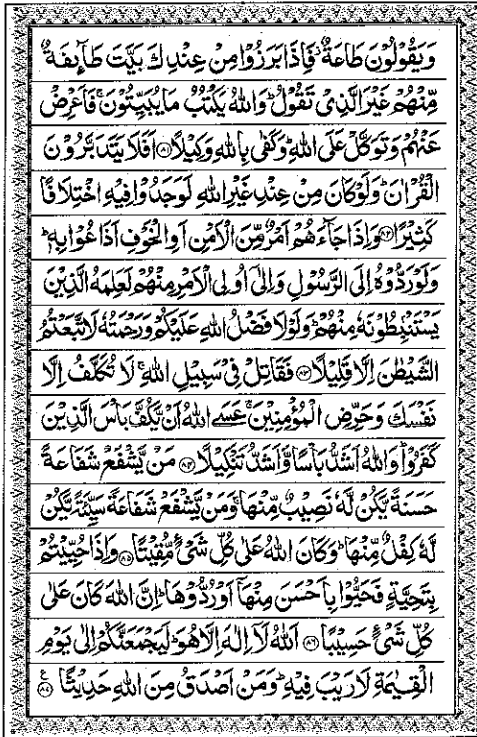 وَيَقُوْلُوْنَ طَاعَةٌ ۫ فَاِذَا بَرَزُوْا مِنْ عِنْدِكَ بَيَّتَ طَآىِٕفَةٌ
مِّنْهُمْ غَيْرَ الَّذِيْ تَقُوْلُ ؕ وَاللّٰهُ يَكْتُبُ مَا يُبَيِّتُوْنَ ۚ فَاَعْرِضْ
عَنْهُمْ وَتَوَكَّلْ عَلَى اللّٰهِ ؕ وَكَفٰى بِاللّٰهِ وَكِيْلًا ﴿۸۱﴾ اَفَلَا يَتَدَبَّرُوْنَ
الْقُرْاٰنَ ؕ وَلَوْ كَانَ مِنْ عِنْدِ غَيْرِ اللّٰهِ لَوَجَدُوْا فِيْهِ اخْتِلَافًا
كَثِيْرًا ﴿۸۲﴾ وَاِذَا جَآءَهُمْ اَمْرٌ مِّنَ الْاَمْنِ اَوِ الْخَوْفِ اَذَاعُوْا بِهٖ ؕ
وَلَوْ رَدُّوْهُ اِلَى الرَّسُوْلِ وَاِلٰۤى اُولِى الْاَمْرِ مِنْهُمْ لَعَلِمَهُ الَّذِيْنَ
يَسْتَنْۢبِطُوْنَهٗ مِنْهُمْ ؕ وَلَوْلَا فَضْلُ اللّٰهِ عَلَيْكُمْ وَرَحْمَتُهٗ لَاتَّبَعْتُمُ
الشَّيْطٰنَ اِلَّا قَلِيْلًا ﴿۸۳﴾ فَقَاتِلْ فِيْ سَبِيْلِ اللّٰهِ ۚ لَا تُكَلَّفُ اِلَّا
نَفْسَكَ وَحَرِّضِ الْمُؤْمِنِيْنَ ۚ عَسَى اللّٰهُ اَنْ يَّكُفَّ بَاْسَ الَّذِيْنَ
كَفَرُوْا ؕ وَاللّٰهُ اَشَدُّ بَاْسًا وَّاَشَدُّ تَنْكِيْلًا ﴿۸۴﴾ مَنْ يَّشْفَعْ شَفَاعَةً
حَسَنَةً يَّكُنْ لَّهٗ نَصِيْبٌ مِّنْهَا ۚ وَمَنْ يَّشْفَعْ شَفَاعَةً سَيِّئَةً يَّكُنْ
لَّهٗ كِفْلٌ مِّنْهَا ؕ وَكَانَ اللّٰهُ عَلٰى كُلِّ شَيْءٍ مُّقِيْتًا ﴿۸۵﴾ وَاِذَا حُيِّيْتُمْ
بِتَحِيَّةٍ فَحَيُّوْا بِاَحْسَنَ مِنْهَاۤ اَوْ رُدُّوْهَا ؕ اِنَّ اللّٰهَ كَانَ عَلٰى
كُلِّ شَيْءٍ حَسِيْبًا ﴿۸۶﴾ اَللّٰهُ لَاۤ اِلٰهَ اِلَّا هُوَ ؕ لَيَجْمَعَنَّكُمْ اِلٰى يَوْمِ
الْقِيٰمَةِ لَا رَيْبَ فِيْهِ ؕ وَمَنْ اَصْدَقُ مِنَ اللّٰهِ حَدِيْثًا ﴿۸۷﴾ ع